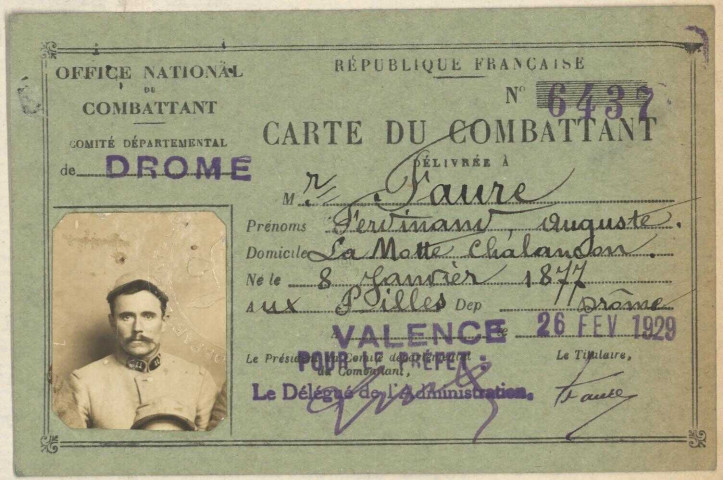 OFFICE NATIONAL
DU
COMBATTANT
COMITÉ DÉPARTEMENTAL
de DROME
RÉPUBLIQUE FRANÇAISE
N° 6437
CARTE DU COMBATTANT
DÉLIVRÉE À
Mr Faure
Prénoms Ferdinand, Auguste.
Domicile La Motte Chalancon.
Né le 8 Janvier 1877
Aux Pilles Dep Drôme
A VALENCE le 26 FEV 1929
Le Président du Comité départemental
du Combattant,
POUR LE PRÉFET:
Le Délégué de l'Administration.
Le Titulaire,
Faure